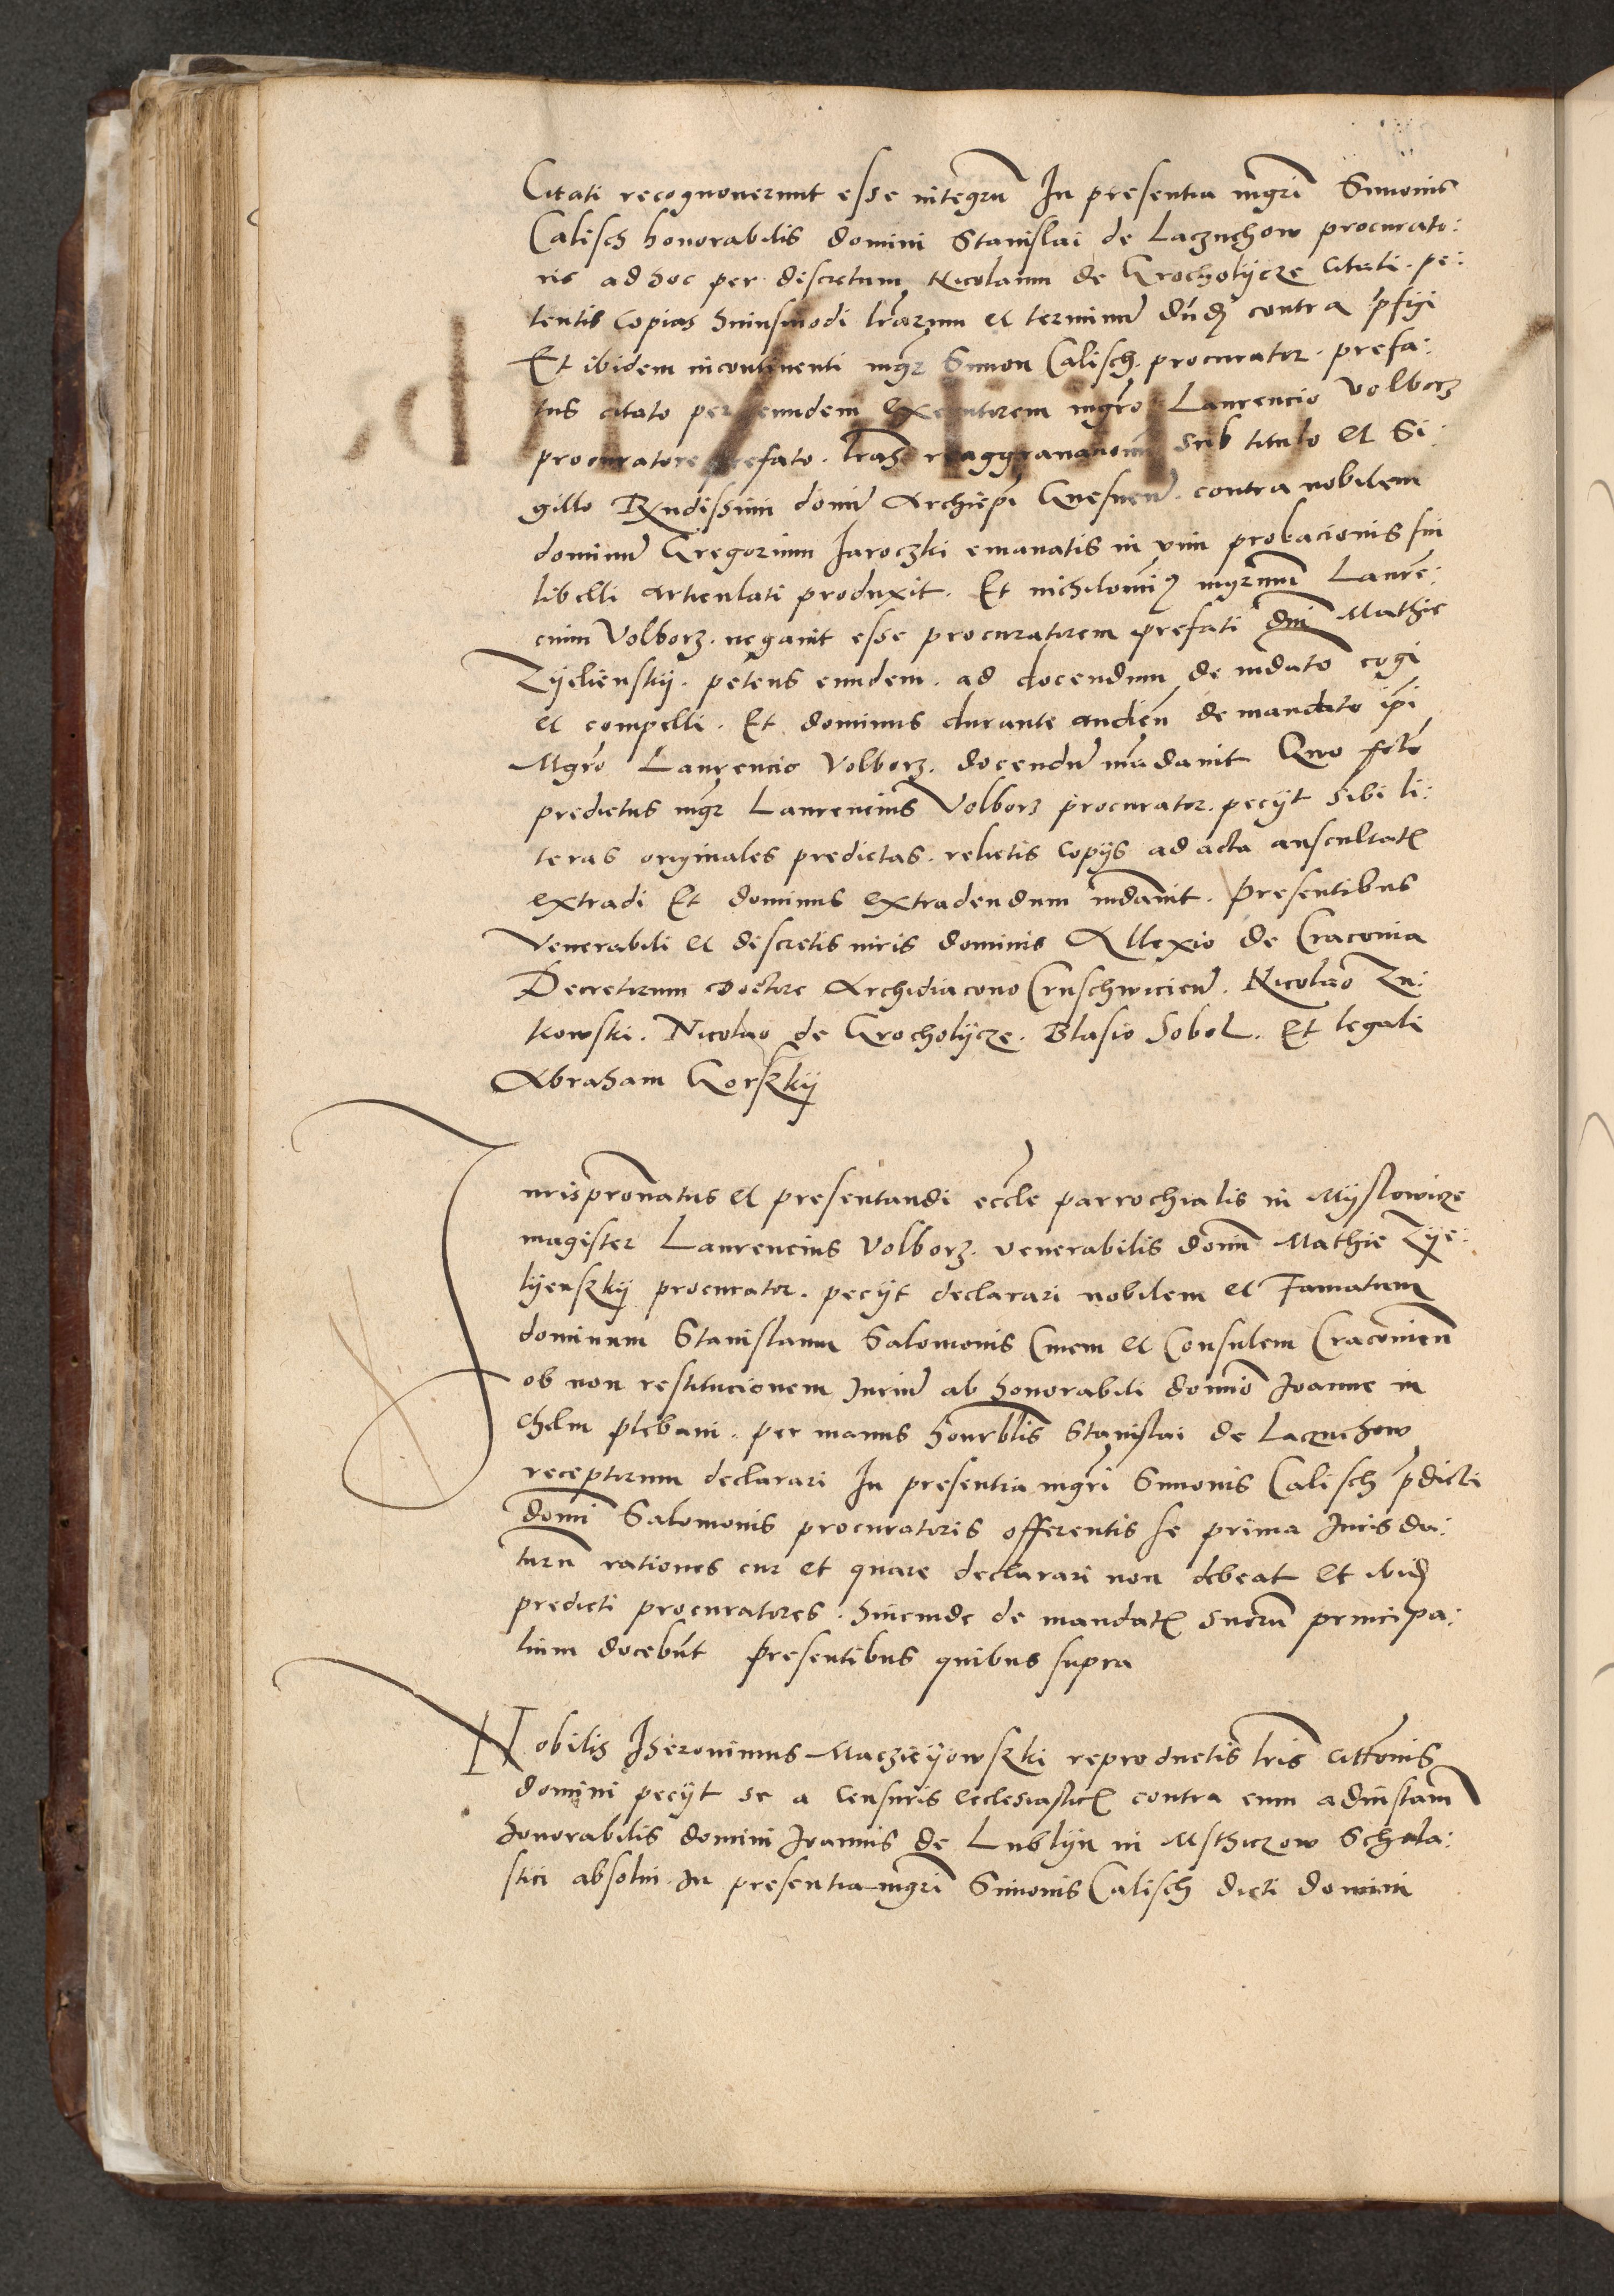 Citati recognouerunt esse integrũ In presentia mgri᷉ Simonis
Calisch honorabilis domini Stanislai de Laczuchow procurato:
ris ad hoc per discretum Nicolaum de Grocholycze citati. pe:
tentis copias huiusmodi lr̃arum et terminũ dñd contra p̃figi
Et ibidem incontinenti mgr̃ Simon Calisch procurator. prefa:
tus citato per eundem executorem mgr̃o Laurencio Volborz
procuratore prefato. lr̃as reaggrauationũ sub titulo et Si:
gillo Rxndissimi domĩ Archiepĩ Gnesneñ. contra nobilem
dominũ Gregorium Jaroczki emanatis in vim probacionis sui
libelli articulati produxit. Et nichilomiꝰ mgrum Lauren:
cium Volborz. negauit esse procuratorem prefati dñi Mathie
Zyelienskij. petens eundem. ad docendum de mdato cogi
et compelli. Et dominus durante audieñ de mandato ip̃i
Mgr̃o Laurencio Volborz. docendũ mãdauit Quo fc̃to
predictus mgr̃ Laurencius Volborz procurator. pecijt sibi li:
teras originales predictas. relictis copijs ad acta auscultatꝭ
extradi Et dominus extradendum mdauit. Presentibus
Venerabili et discretis viris dominis Allexio de Cracouia
Decretorum doctore Archidiacono Cruschwicieñ. Nicolao Zu:
kowski. Nicolao de Grocholycze. Blasio Sobol. Et legali
Abraham Gorszkij
Jurispronatus et presentandi eccl̃e parrochialis in Myslowicze
magister Laurencius Volborz. venerabilis domĩ Mathie Zye:
lyenszkij procurator. pecijt declarari nobilem et Famatum
dominum Stanislaum Salomonis Ciuem et Consulem Cracouieñ
ob non restitucionem Juriũ ab honorabili domĩo Joanne in
chelm plebani. per manus honrblis Stanislai de Laczuchow
receptorum declarari In presentia mgri᷉ Simonis Calisch p̃dicti
domĩ Salomonis procuratoris offerentis se prima Juris da:
turũ rationes cur et quare declarari non debeat et ibid
predicti procuratores. hincinde de mandatꝭ suorũ principa:
lium docebũt Presentibus quibus supra
Nobilis Jheronimus Maczieyowszki reproductis lr̃is citt̃onis
domini pecijt se a Censuris ecclesiasticꝭ contra eum adinstam̃
honorabilis domini Joannis de Lublyn in Msthiczow Schola:
stici absolui. In presentia mgri᷉ Simonis Calisch dicti domini